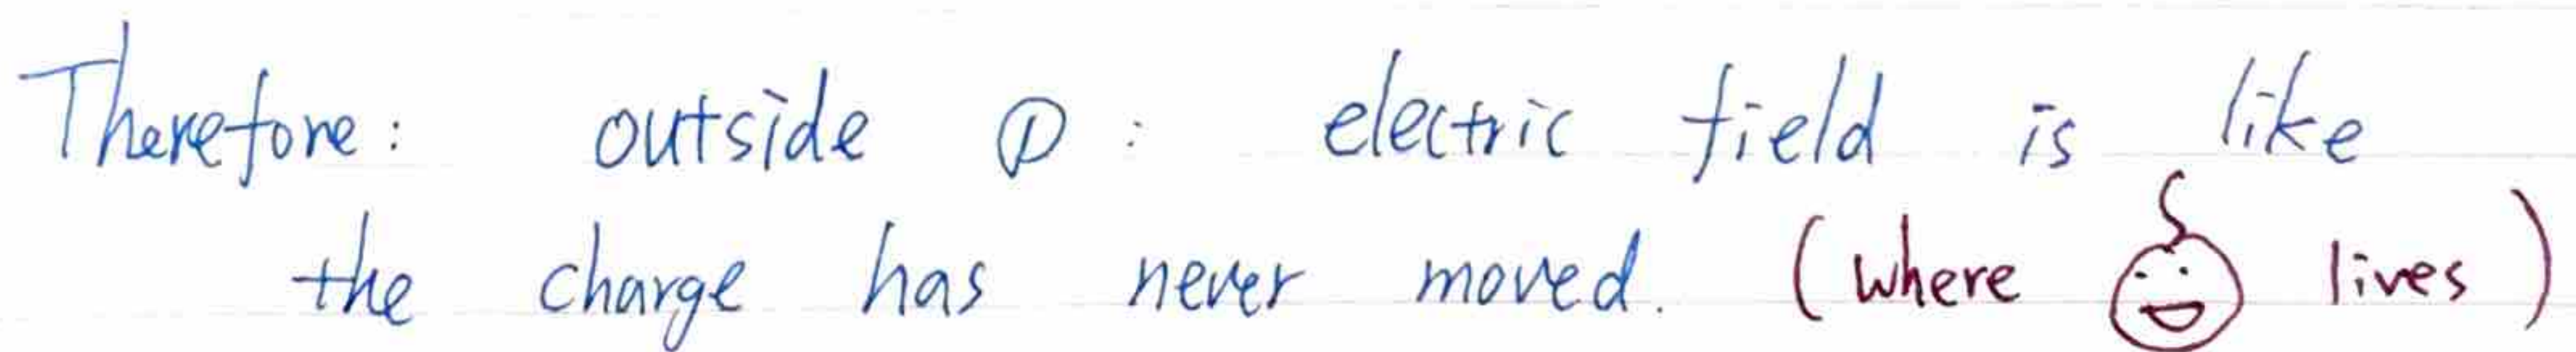 Therefore: outside ① : electric field is like
the charge has never moved. (where lives)